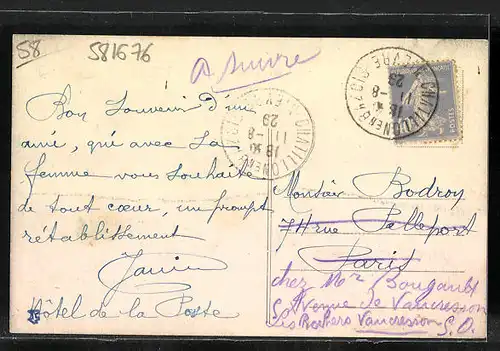 58
581676
A suivre
CHATILLON EN BAZOIS
NIEVRE
18 30
11-8
29
POSTES
Bon Souvenir d'un
ami, qui avec sa
femme vous souhaite
de tout cœur, un prompt
rétablissement
Janin
Hôtel de la Poste
Monsieur Bodroy
rue Pelleport
Paris
chez Mr Bougault
Avenue de Vaucresson
Les Rochers Vaucresson
S. O.